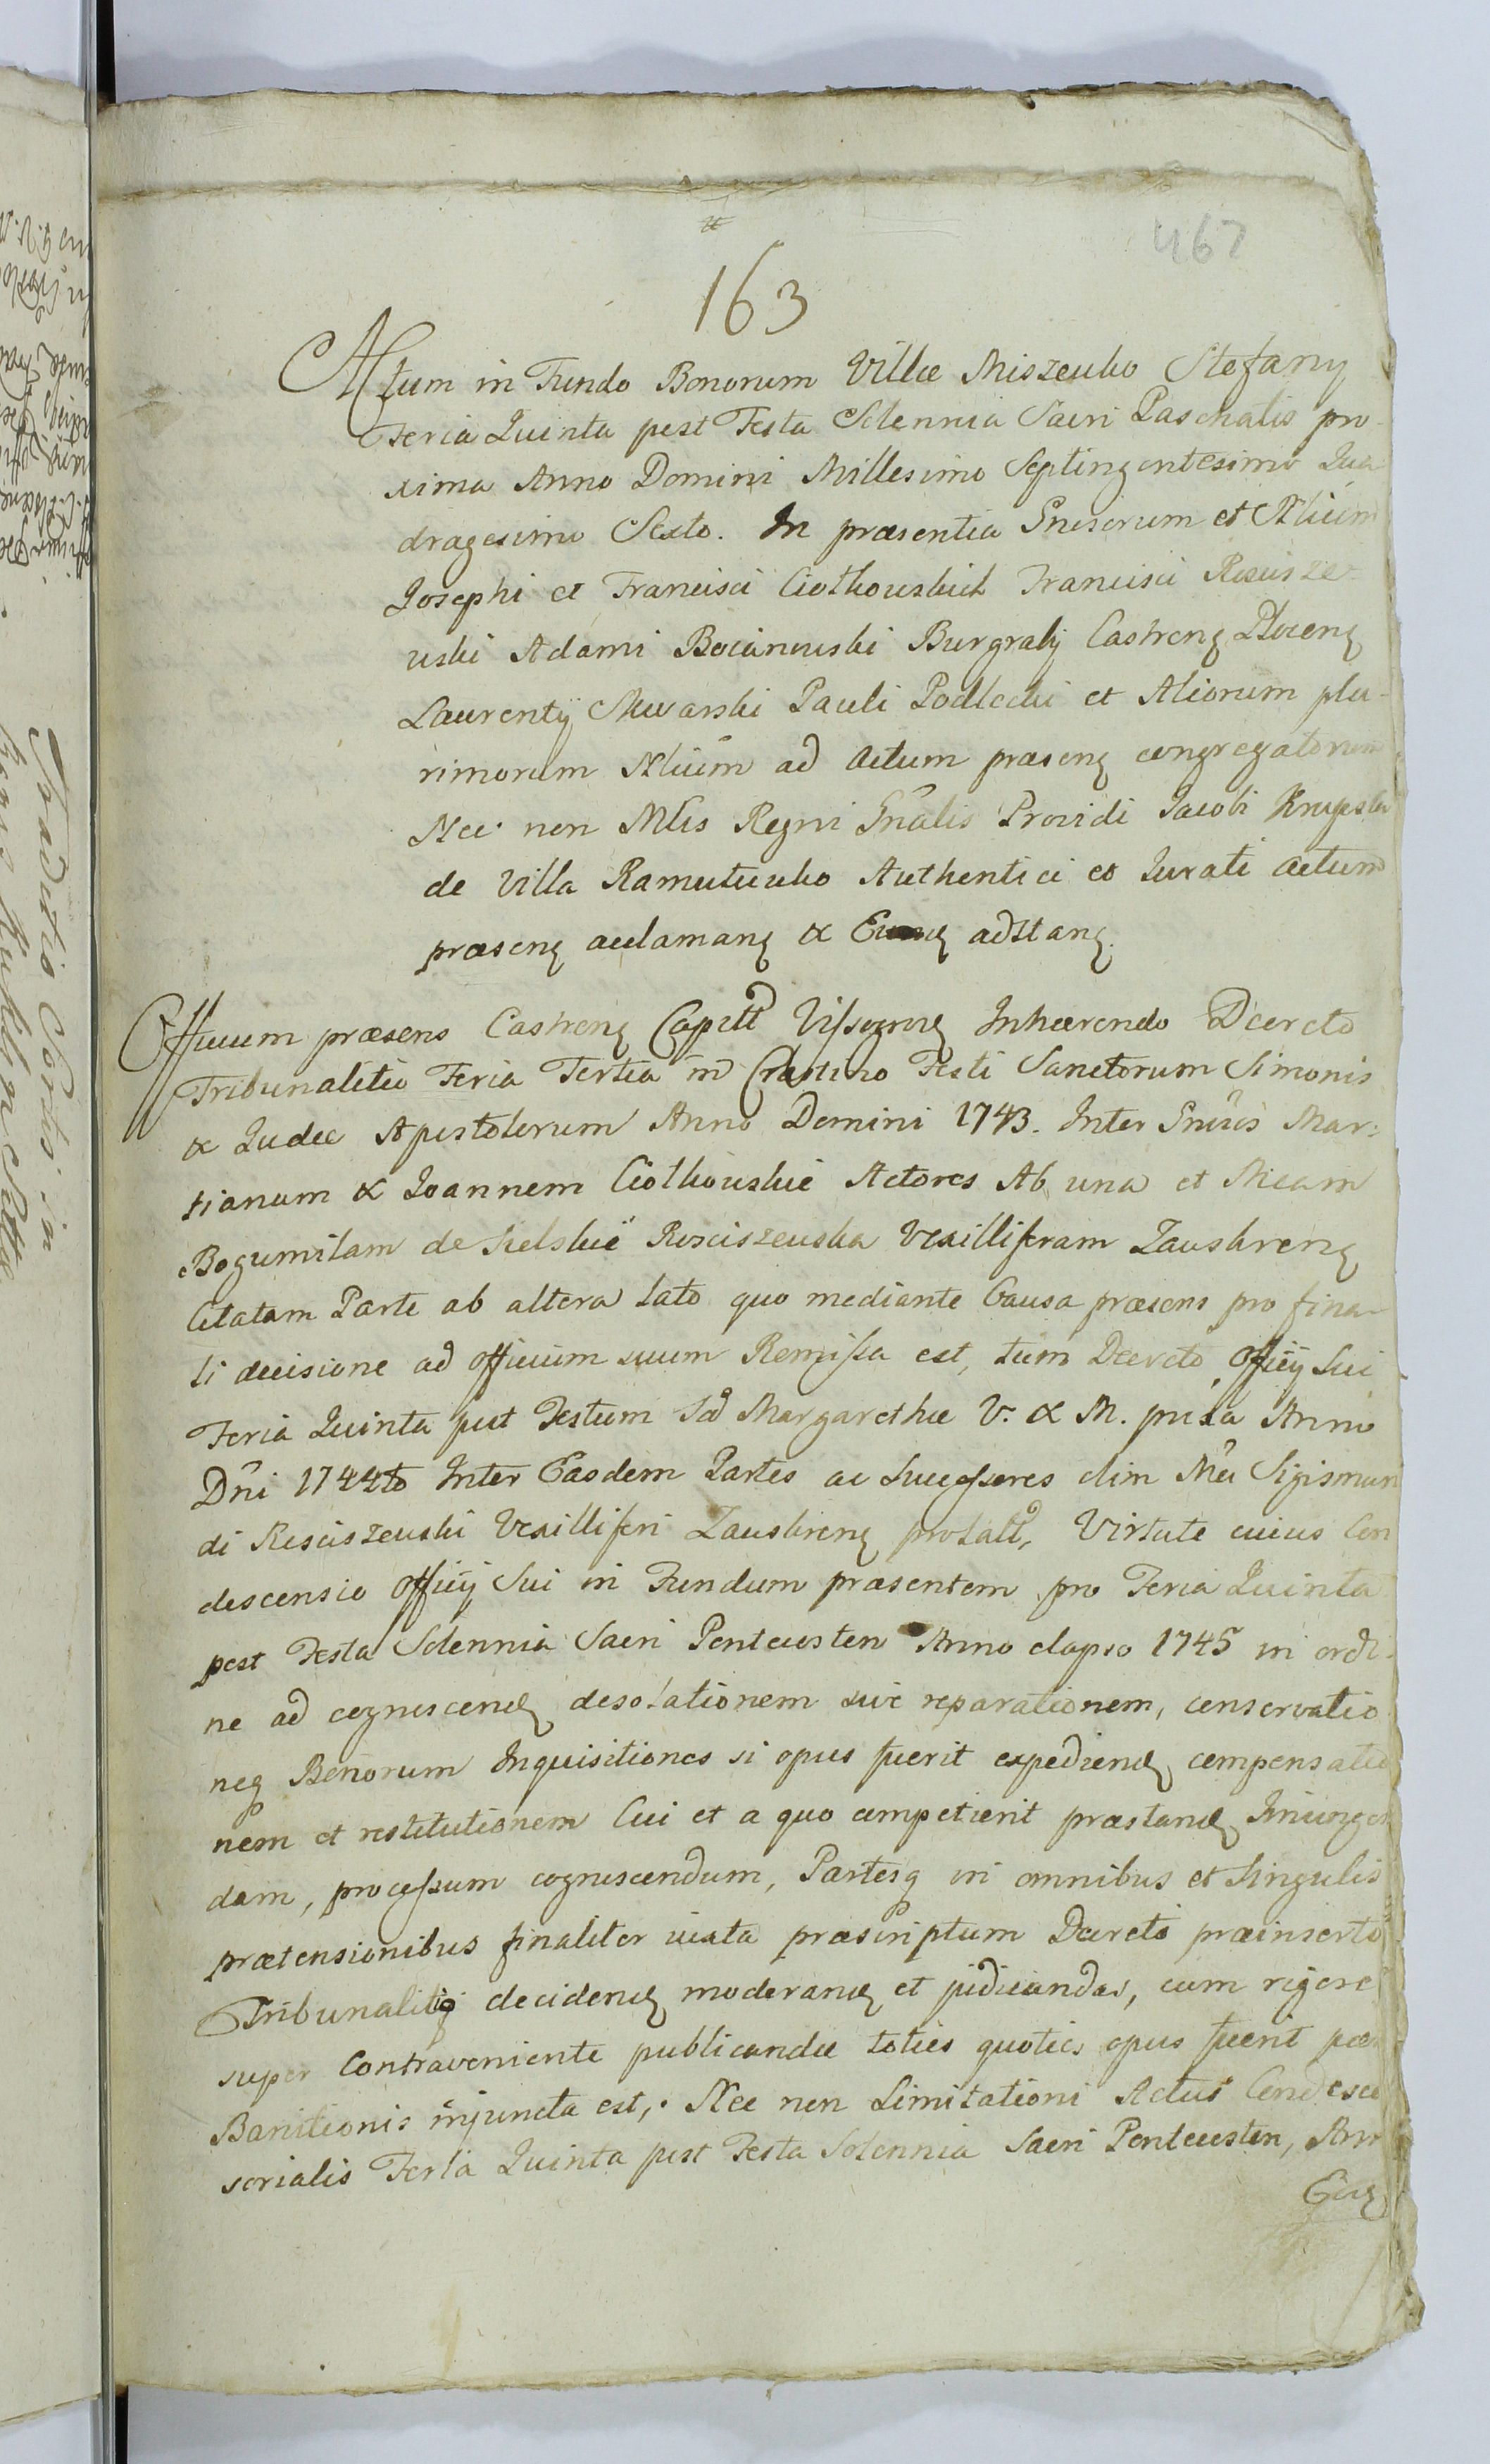 467
163
Actum in Fundo Bonorum Villæ Miszewko Stefany
Feria Quinta post Festa Solennia Sacri Paschatis pro-
xima Anno Domini Millesimo Septingentesimo Qua
dragesimo Sexto. In præsentia Gnesorum et Nlium
Josephi et Francisci Ciotkowskich Francisci Roscisze-
wski Adami Bocianowski Burgrabij Castrenꝫ Plocenꝫ
Laurentij Skwarski Pauli Podlecki et Aliorum plu-
rimorum Nlium ad Actum præsenꝫ congregatorum
Nec non Mlis Regni Gnalis Providi Jacobi Krupski
de Villa Ramutuwko Authentici et Jurati Actum
præsenꝫ acclamanꝫ & adstanꝫ.
Officium præsens Castrenꝫ Capitt Vissogrodꝫ Inhærendo Decreto
Tribunalitio Feria Tertia in Crastino Festi Sanctorum Simonis
& Judæ Apostolorum Anno Domini 1743. Inter Gnsos Mar:
tianum & Joannem Ciotkowskie Actores Ab una et Mcam
Bogumilam de Kielskie Rosciszewska Vexilliferam Zawskrenꝫ
Citatam Parte ab altera lato quo mediante Causa præsens pro fina-
li decisione ad officium suum Remissa est, tum Decreto Officij Sui
Feria Quinta post Festum Sæ Margarethæ V. & M. pnxa Anno
Dñi 1744to Inter Easdem Partes ac Successores olim Mci Sigismun
di Rosciszewski Vexilliferi Zawskrenꝫ prolatt, Virtute cuius Con
descensio Officij Sui in Fundum præsentem pro Feria Quinta
post Festa Solennia Sacri Pentecosten Anno elapso 1745 in ordi-
ne ad cognoscendꝫ desolationem sive reparationem, conservatio
neqꝫ Bonorum Inquisitiones si opus fuerit expediendꝫ compensatio
nem et restitutionem Cui et a quo competierit præstandꝫ Iniungen
dam, processum cognoscendum, Partesqꝫ in omnibus et singulis
prætensionibus finaliter iuxta præscriptum Decreti præinserto
Tribunalitij decidendꝫ moderandꝫ et judicandas, cum rigore
super Contraveniente publicandæ toties quoties opus fuerit pæ
Banitionis injuncta est,. Nec non Limitationi Actus Condescen
sorialis Feria Quinta post Festa Solennia Sacri Pentecosten, Anno
Traditio Sortis in